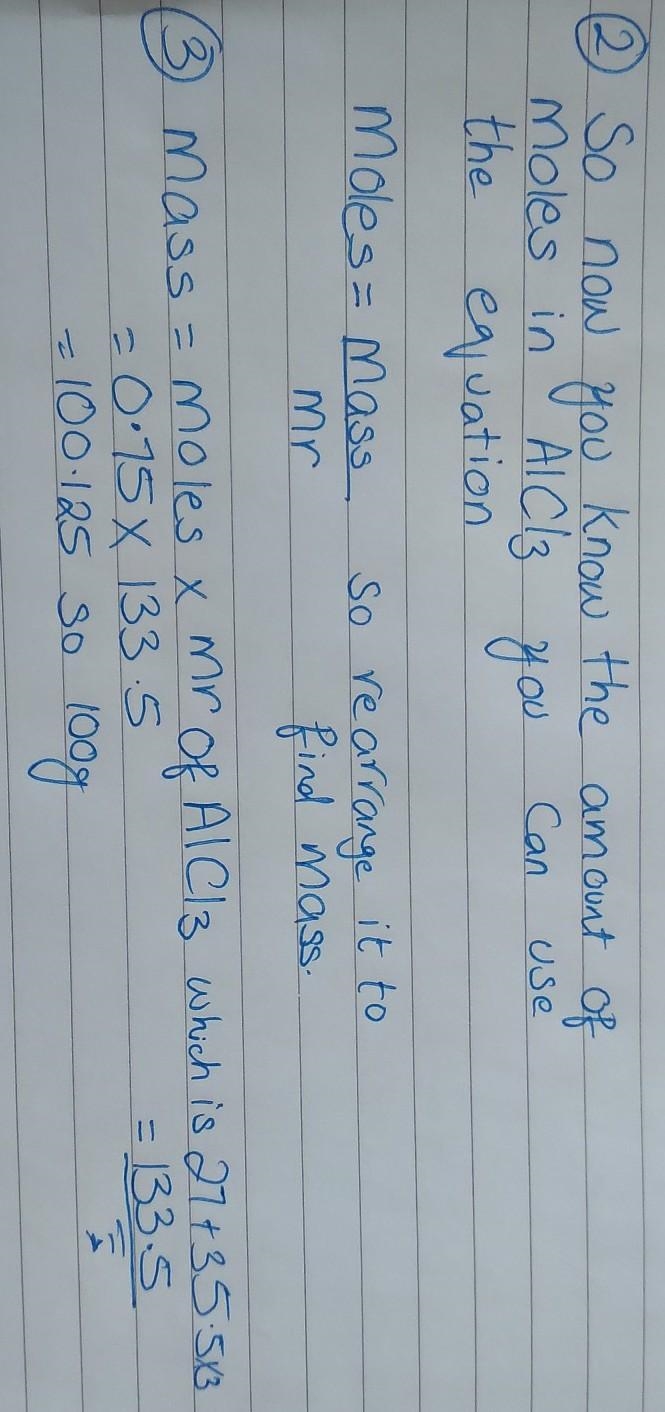 ② So now you know the amount of
moles in AlCl3 you can use
the equation
Moles = Mass so rearrange it to
Mr find mass.
③ Mass = moles x Mr of AlCl3 which is 27+35.5x3
= 0.75 x 133.5 = 133.5
= 100.125 so 100g